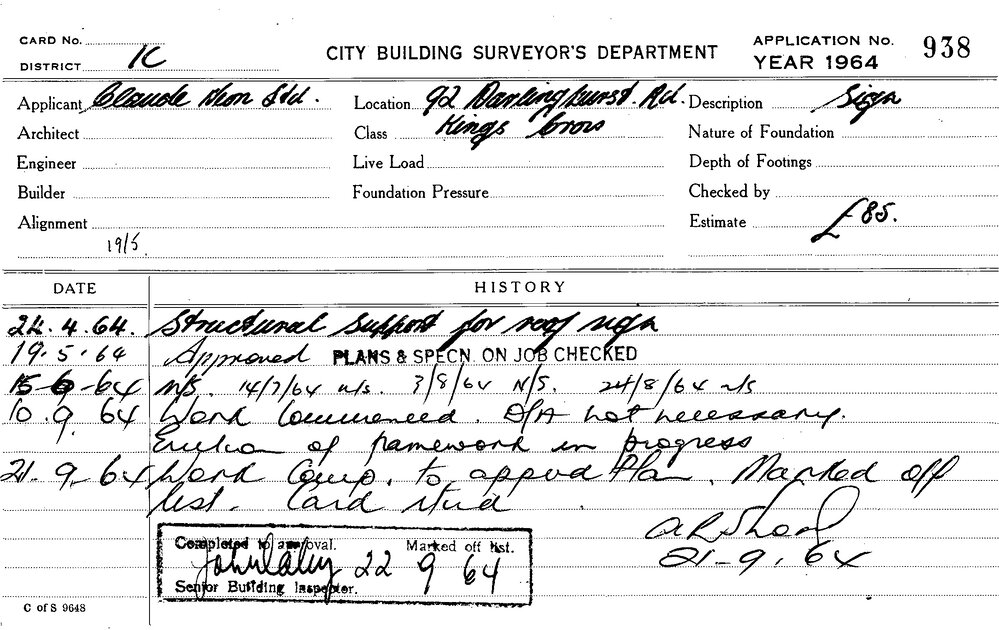 CARD No.
DISTRICT K
CITY BUILDING SURVEYOR'S DEPARTMENT
APPLICATION No. 938
YEAR 1964
Applicant Claude Neon Ltd.
Location 92 Darlinghurst Rd.
Kings Cross
Description Sign
Architect
Class
Nature of Foundation
Engineer
Live Load
Depth of Footings
Builder
Foundation Pressure
Checked by
Alignment
Estimate £85.
19/5
DATE HISTORY
24.4.64. Structural support for roof sign
19.5.64 Approved PLANS & SPECN. ON JOB CHECKED
15-6-64 N/S. 14/7/64 N/S. 3/8/64 N/S. 24/8/64 N/S
10.9.64 Work Commenced. D/A not necessary.
Erection of framework in progress
21-9-64 Work Comp. to appvd Plan. Marked off
list. Card
21-9.64
Completed to approval. Marked off list.
22 9 64
Senior Building Inspector.
C of S 9648